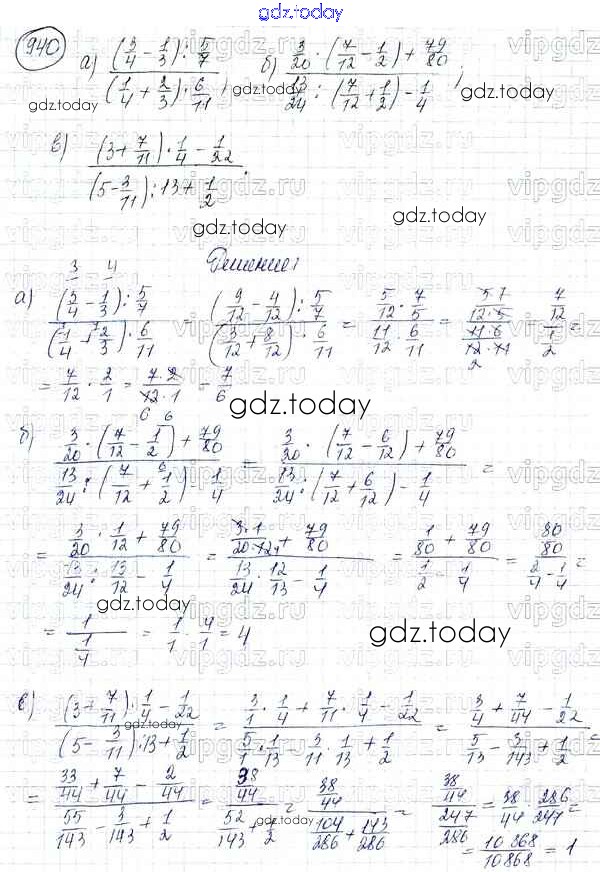 gdz.today
940 а) ((3/4 - 1/3) : 5/7) / ((1/4 + 2/3) · 6/11); б) (3/20 · (7/12 - 1/2) + 79/80) / (13/24 : (7/12 + 1/2) - 1/4);
gdz.today gdz.today
в) ((3 + 7/11) · 1/4 - 1/22) / ((5 - 3/11) : 13 + 1/2).
gdz.today gdz.today
Решение:
3 4
а) ((3/4 - 1/3) : 5/7) / ((1/4 + 2/3) · 6/11) = ((9/12 - 4/12) : 5/7) / ((3/12 + 8/12) · 6/11) = (5/12 · 7/5) / (11/12 · 6/11) = (5·7 / 12·5) / (11·6 / 12·11) = (7/12) / (1/2) =
2
= 7/12 · 2/1 = 7·2 / 12·1 = 7/6
6 gdz.today
б) (3/20 · (7/12 - 1/2) + 79/80) / (13/24 : (7/12 + 1/2) - 1/4) = (3/20 · (7/12 - 6/12) + 79/80) / (13/24 : (7/12 + 6/12) - 1/4) =
= (3/20 · 1/12 + 79/80) / (13/24 : 13/12 - 1/4) = (3·1 / 20·12 + 79/80) / (13/24 · 12/13 - 1/4) = (1/80 + 79/80) / (1/2 - 1/4) = (80/80) / (2/4 - 1/4) =
gdz.today
= 1 / (1/4) = 1/1 · 4/1 = 4 gdz.today
в) ((3 + 7/11) · 1/4 - 1/22) / ((5 - 3/11) : 13 + 1/2) = (3/1 · 1/4 + 7/11 · 1/4 - 1/22) / (5/1 · 1/13 - 3/11 · 1/13 + 1/2) = (3/4 + 7/44 - 1/22) / (5/13 - 3/143 + 1/2) =
= (33/44 + 7/44 - 2/44) / (55/143 - 3/143 + 1/2) = (38/44) / (52/143 + 1/2) = (38/44) / (104/286 + 143/286) = (38/44) / (247/286) = 38/44 · 286/247 =
gdz.today = 10868/10868 = 1